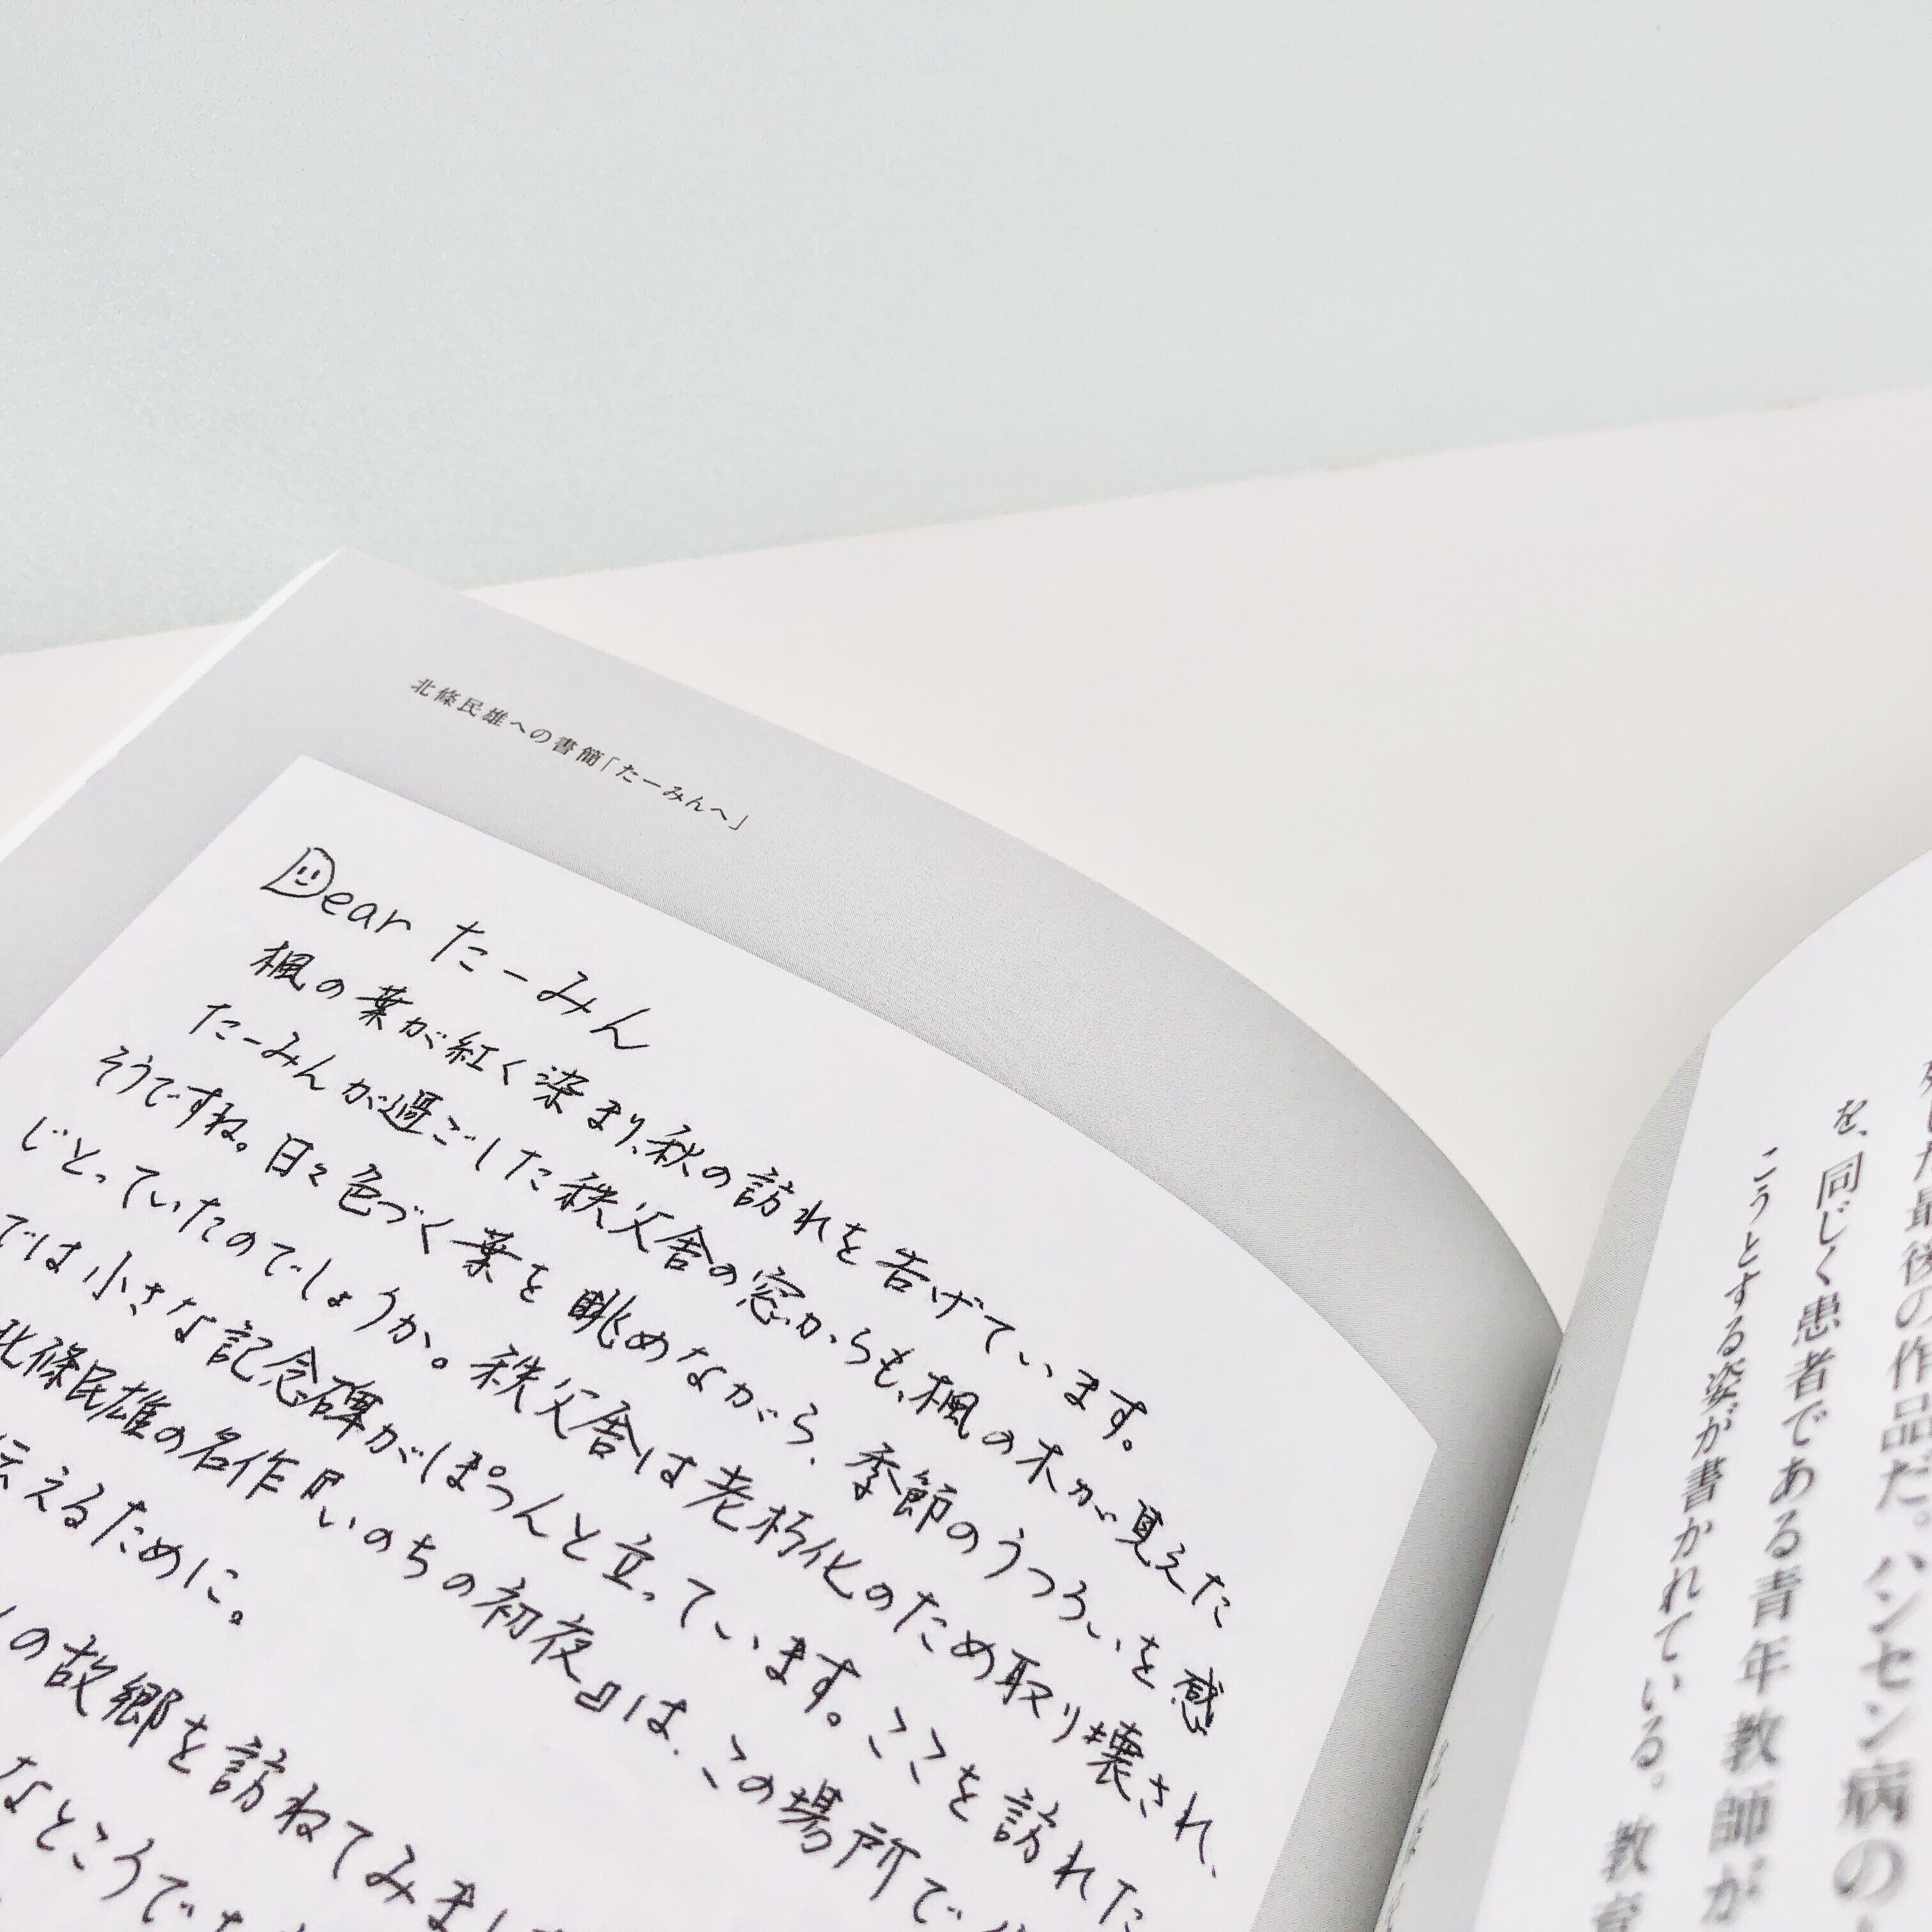 北條民雄への書簡「たーみんへ」
Dear たーみん
楓の葉が紅く染まり、秋の訪れを告げています。
たーみんが過ごした秩父舎の窓からも、楓の木が見えた
そうですね。日々色づく葉を眺めながら、季節のうつろいを感
じとっていたのでしょうか。秩父舎は老朽化のため取り壊され、
では小さな記念碑がぽつんと立っています。ここを訪れた
北條民雄の名作『いのちの初夜』は、この場所で
伝えるために。
の故郷を訪ねてみまし
なところで
最後の作品だ。ハンセン病の
を、同じく患者である青年教師が
こうとする姿が書かれている。教育